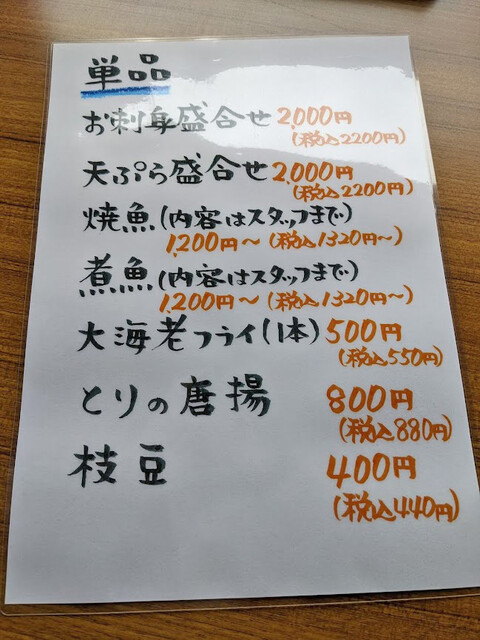 単品
お刺身盛合せ 2,000円
(税込2200円)
天ぷら盛合せ 2,000円
(税込2200円)
焼魚(内容はスタッフまで)
1,200円～(税込1320円～)
煮魚(内容はスタッフまで)
1,200円～(税込1320円～)
大海老フライ(1本) 500円
(税込550円)
とりの唐揚 800円
(税込880円)
枝豆 400円
(税込440円)